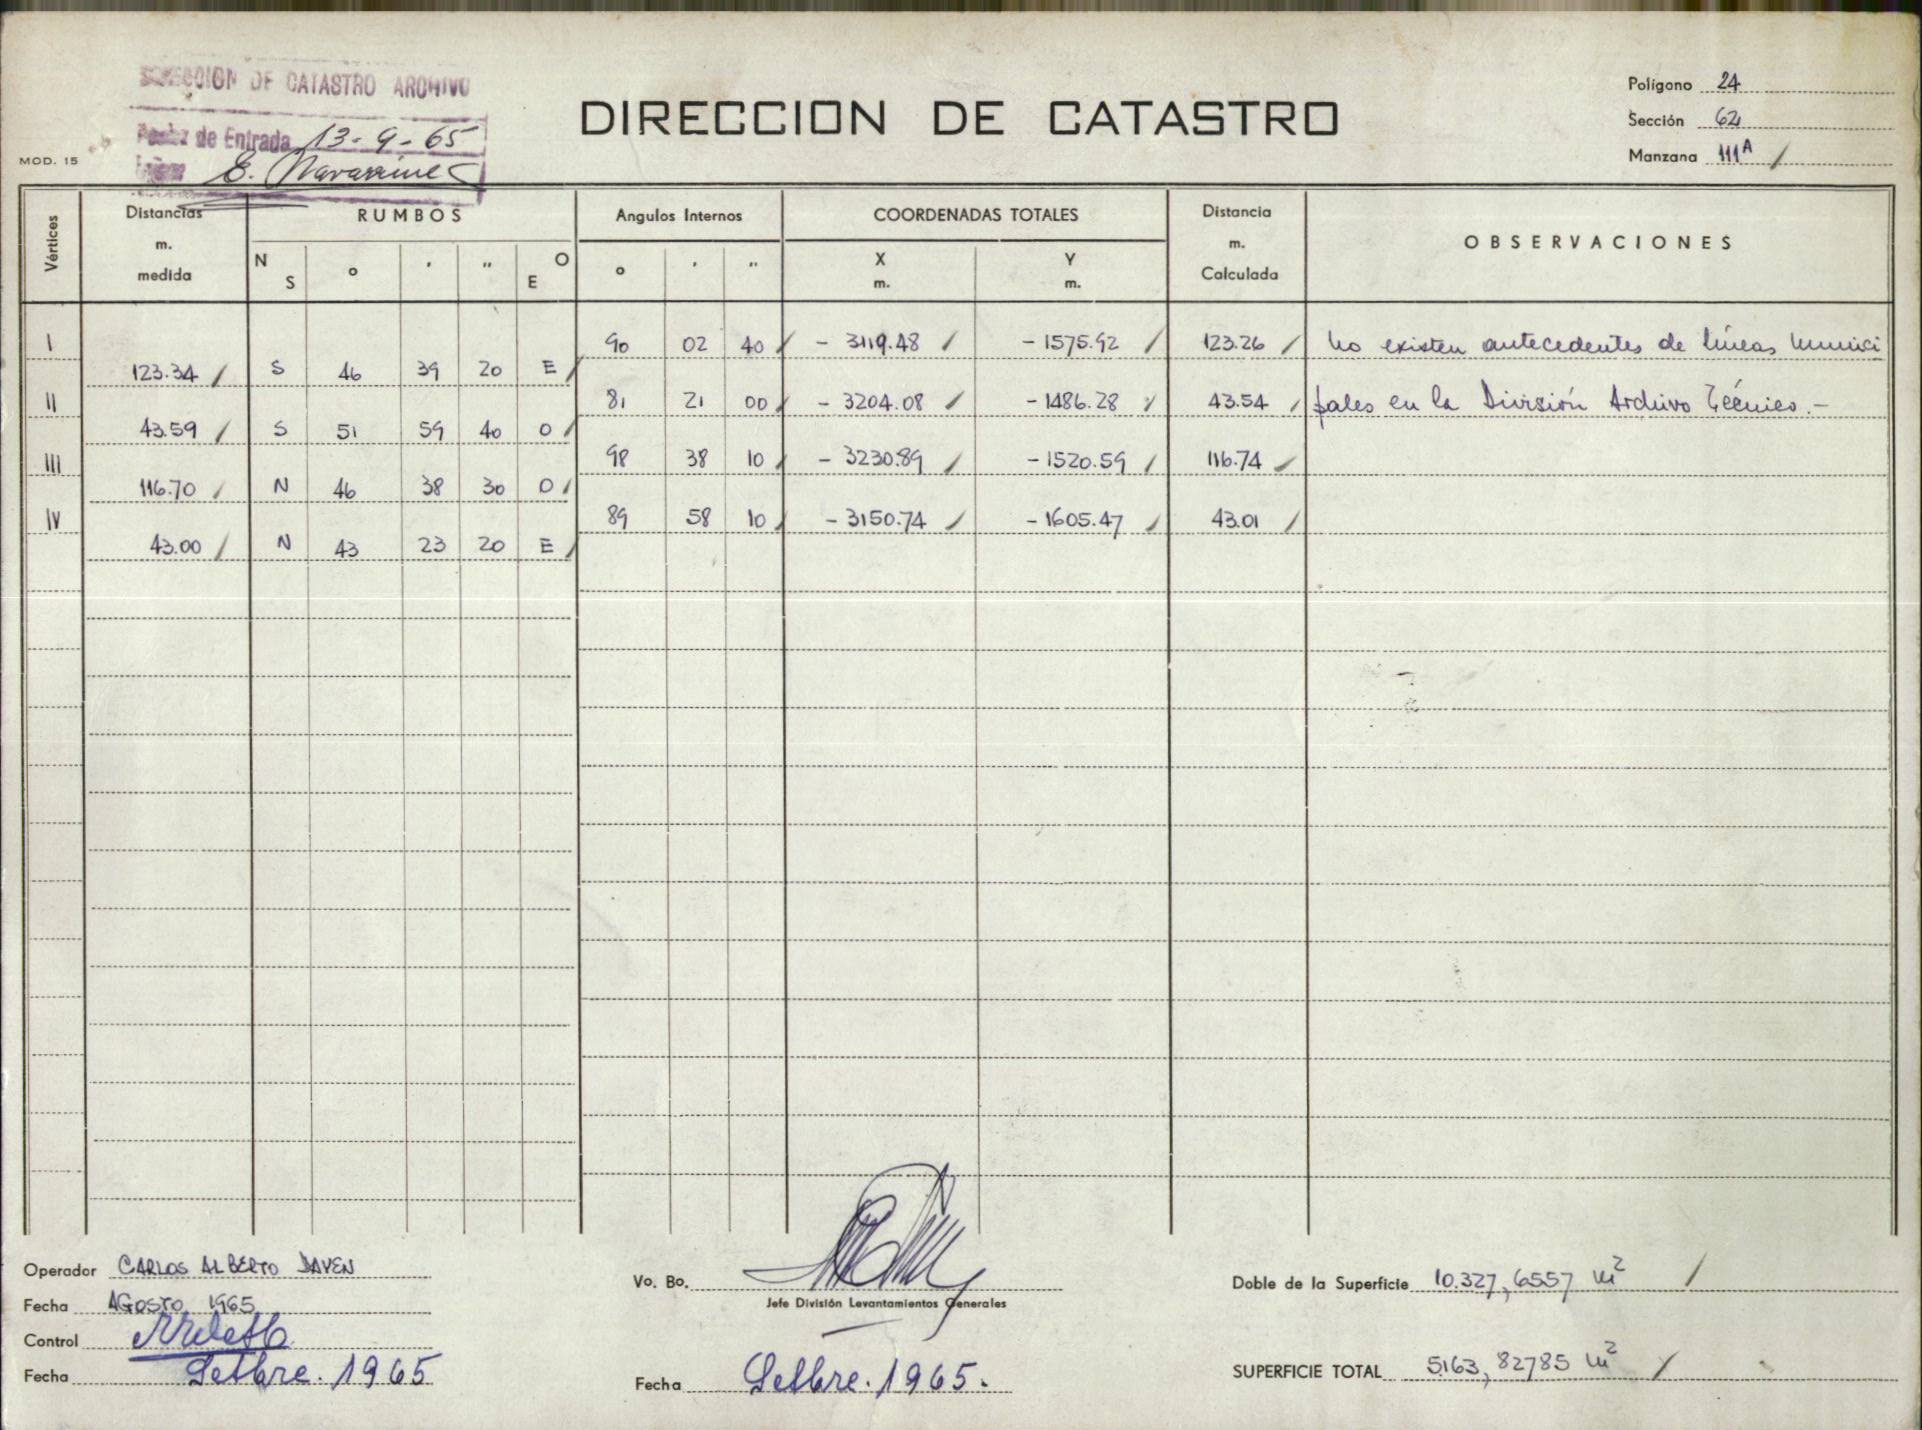 DIRECCION DE CATASTRO ARCHIVO
de Entrada 13-9-65
E.
MOD. 15
DIRECCION DE CATASTRO
Polígono 24
Sección 62
Manzana 111A /
Vértices Distancias m. medida RUMBOS N S ° ' " O E Angulos Internos ° ' " COORDENADAS TOTALES X m. Y m. Distancia m. Calculada OBSERVACIONES
I 90 02 40 / - 3119.48 / - 1575.92 / 123.26 / No existen antecedentes de líneas munici
123.34 / S 46 39 20 E /
II 81 21 00 / - 3204.08 / - 1486.28 / 43.54 / pales en la División Archivo Técnico.-
43.59 / S 51 59 40 O /
III 98 38 10 / - 3230.89 / - 1520.59 / 116.74 /
116.70 / N 46 38 30 O /
IV 89 58 10 / - 3150.74 / - 1605.47 / 43.01 /
43.00 / N 43 23 20 E /
Operador CARLOS ALBERTO DAVEN
Fecha AGOSTO 1965
Control
Fecha Setbre. 1965
Vo. Bo.
Jefe División Levantamientos Generales
Fecha Setbre. 1965.
Doble de la Superficie 10.327,6557 m² /
SUPERFICIE TOTAL 5163,82785 m² /